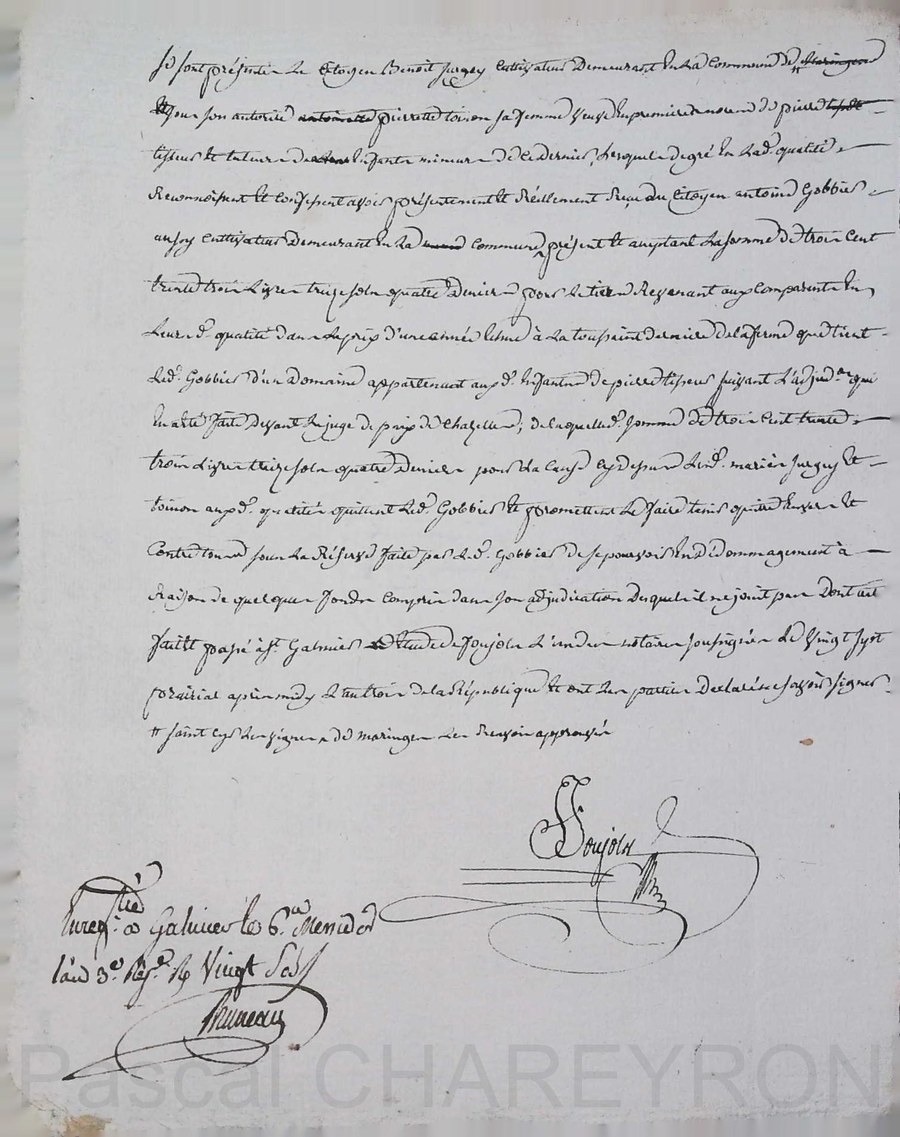 Se sont présentés Le Citoyen Benoit Jurgey Cultivateur Demeurant En La Commune de " Maringes
Et sous son autorité antoinette pierrette toinon sa femme veuve En premieres noces de pierre
tisseur Et tuteurs des Enfants mineurs de Ce dernier, Lesquels de gré En Lad. qualité
Reconnoissent Et Confessent avoir présentement Et Réellement Reçu du Citoyen antoine Gobbier
Cultivateur Demeurant En La commune présent Et acceptant La somme de trois Cent
trente trois Livres treize sols quatre deniers pour Le tiers Revenant aux Comparants En
Leurd. qualité dans Le prix d'une année Echue à La toussaint derniere de la ferme que tient
Led. Gobbier d'un Domaine appartenant auxd. Enfants de pierre tisseur suivant L'adjudon. qui
En a été faite devant Le juge de paix de Chazelles; de laquelle d. somme de trois Cent trente
trois Livres treize sols quatre deniers pour La Cause Cy dessus Led. mariés Jurgey Et
toinon auxd. qualités quittent Led. Gobbier Et promettent Le faire tenir quitte Envers Et
Contre tous sous La Réserve faite par Led. Gobbier de se pourvoir En dédommagement à
Raison de quelques fonds Compris dans son adjudication desquels il ne jouit pas Dont acte
fait Et passé à St. Galmier Etude de Joujols L'un des notaires soussignés Le vingt sept
prairial après midy L'an trois de la République Et ont Les parties declaré ne savoir signer
" saint Cyr Les vignes de maringes Les Renvois approuvés
Joujols
Enregtré. a Galmier le 6. Messidor
l'an 3e. Rép. R Vingt Sols
Bruneau
Pascal CHAREYRON